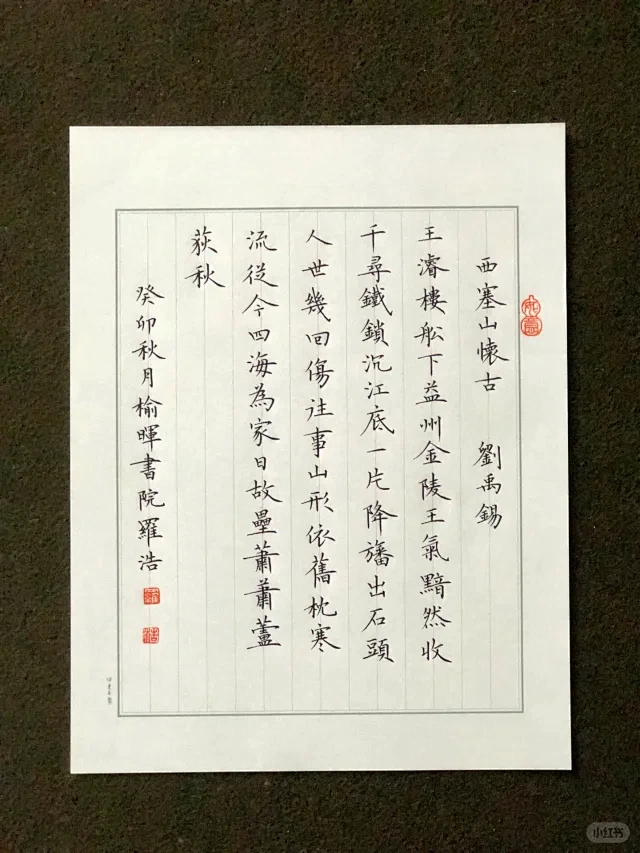 西塞山懷古 劉禹錫
王濬樓舩下益州金陵王氣黯然收
千尋鐵鎖沉江底一片降旛出石頭
人世幾回傷往事山形依舊枕寒
流從今四海為家日故壘蕭蕭蘆
荻秋
癸卯秋月榆暉書院羅浩
小红书